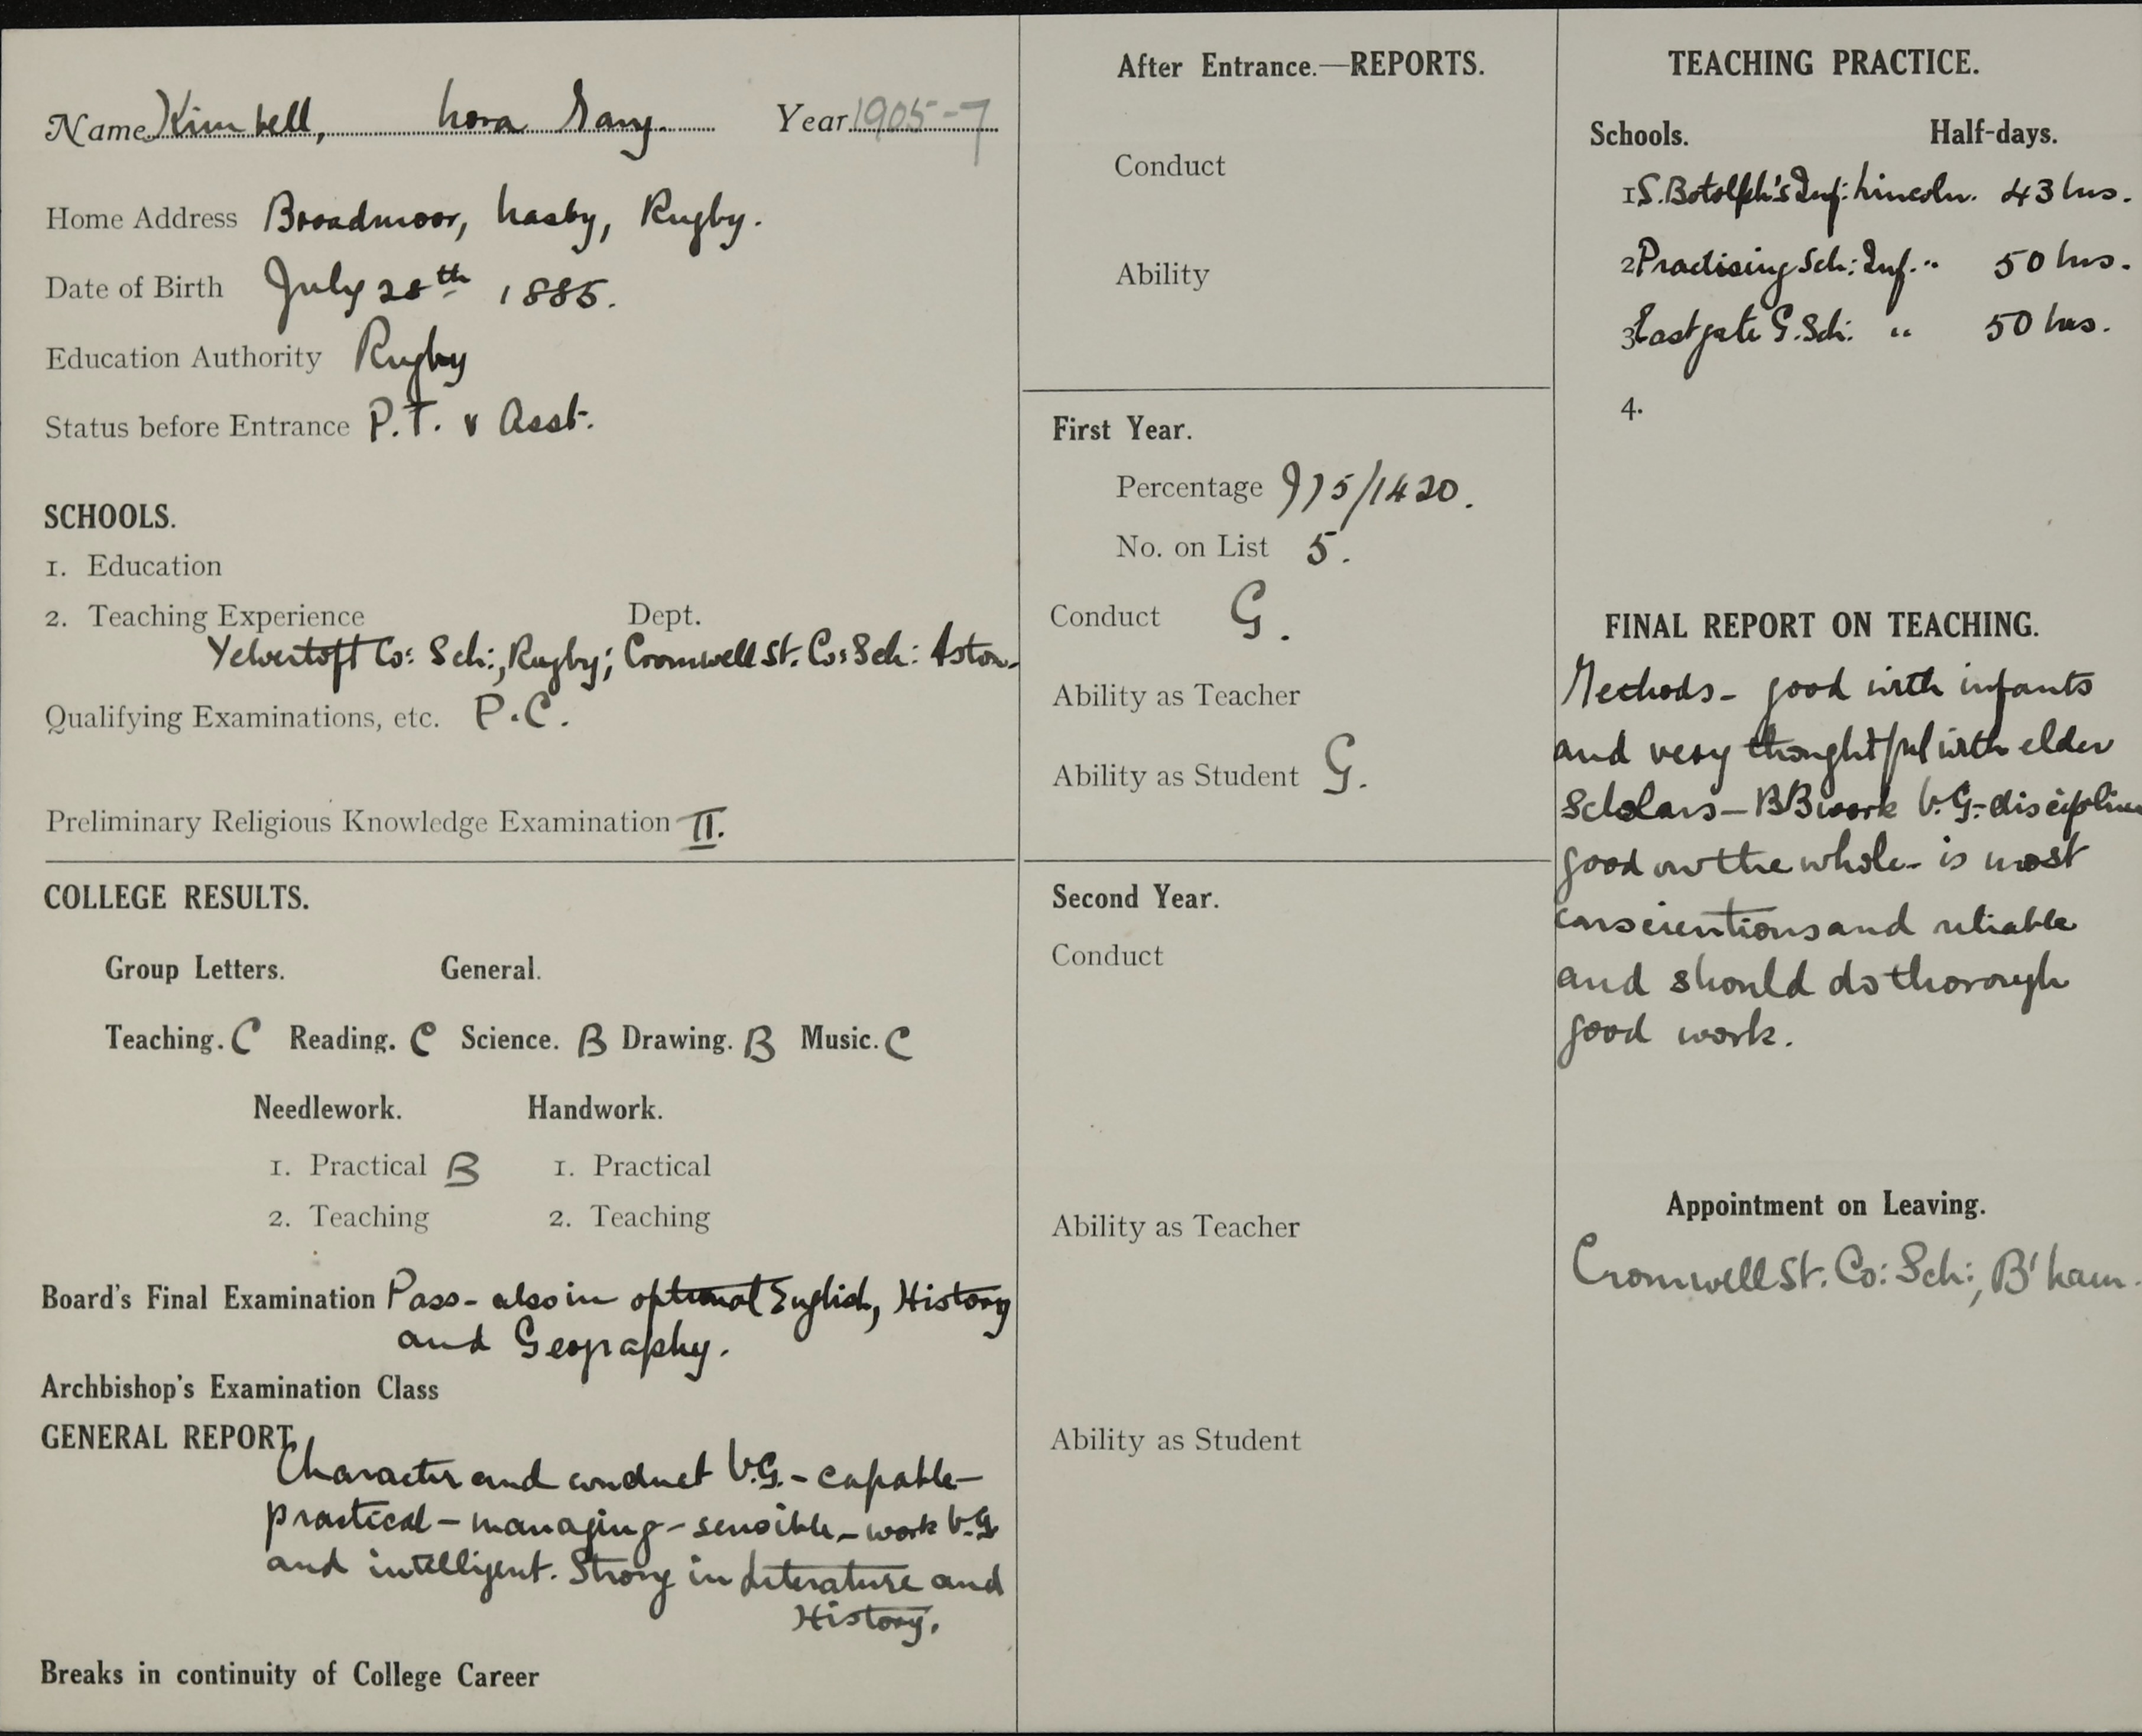 Name Kimbell, Nora Mary. Year 1905-7
Home Address Broadmoor, Nasby, Rugby.
Date of Birth July 28th 1885.
Education Authority Rugby
Status before Entrance P.T. v Asst.
SCHOOLS.
1. Education
2. Teaching Experience Dept.
Yelvertoft Co: Sch:, Rugby; Cromwell St. Co: Sch: Aston.
Qualifying Examinations, etc. P.C.
Preliminary Religious Knowledge Examination II.
COLLEGE RESULTS.
Group Letters. General.
Teaching. C Reading. C Science. B Drawing. B Music. C
Needlework. Handwork.
1. Practical B 1. Practical
2. Teaching 2. Teaching
Board's Final Examination Pass - also in optional English, History
and Geography.
Archbishop's Examination Class
GENERAL REPORT.
Character and conduct V.G. - capable -
practical - managing - sensible - work V.G.
and intelligent. Strong in Literature and
History.
Breaks in continuity of College Career
After Entrance.—REPORTS.
Conduct
Ability
First Year.
Percentage 975/1420.
No. on List 5.
Conduct G.
Ability as Teacher
Ability as Student G.
Second Year.
Conduct
Ability as Teacher
Ability as Student
TEACHING PRACTICE.
Schools. Half-days.
1 S. Botolph's Inf: Lincoln. 43 hrs.
2 Practising Sch: Inf. " 50 hrs.
3 Eastgate G. Sch: " 50 hrs.
4.
FINAL REPORT ON TEACHING.
Methods - good with infants
and very thoughtful with elder
scholars - BB work V.G. - discipline
good on the whole - is most
conscientious and reliable
and should do thorough
good work.
Appointment on Leaving.
Cromwell St. Co: Sch:, B'ham.